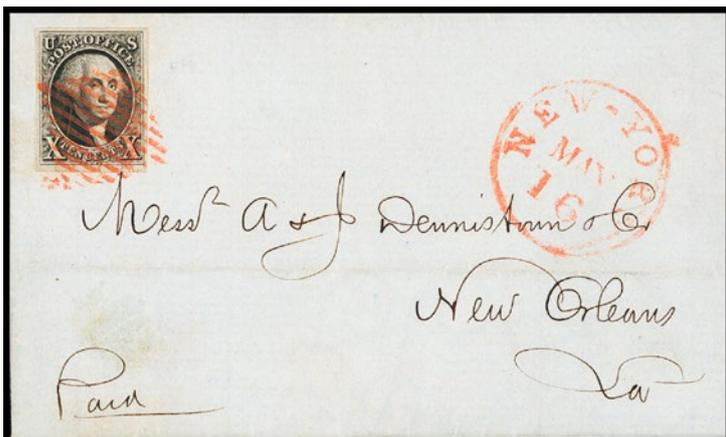 U S
POST OFFICE
X TEN CENTS X
NEW-YORK
MAY
16
Messrs A & J Dennistoun & Co
New Orleans
La
Paid